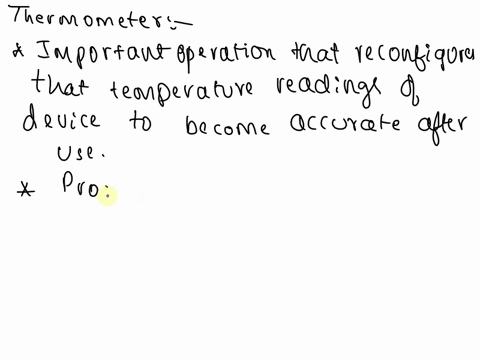 Thermometer:-
* Important operation that reconfigures
that temperature readings of
device to become accurate after
use.
* Pro